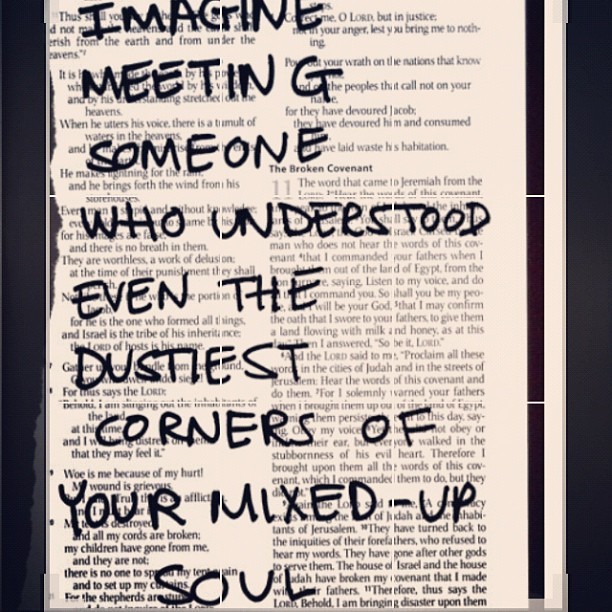 IMAGINE
MEETING
SOMEONE
WHO UNDERSTOOD
EVEN THE
DUSTIEST
CORNERS OF
YOUR MIXED-UP
SOUL
erish from the earth and from under the
heavens.
When he utters his voice, there is a tumult of
waters in the heavens,
and he brings forth the wind from his
storehouses.
and there is no breath in them.
They are worthless, a work of delusion;
at the time of their punishment they shall
for he is the one who formed all things,
and Israel is the tribe of his inheritance;
the LORD of hosts is his name.
For thus says the LORD:
that they may feel it."
Woe is me because of my hurt!
My wound is grievous.
and all my cords are broken;
my children have gone from me,
and they are not;
there is no one to spread my tent again
and to set up my curtains.
For the shepherds are
me, O LORD, but in justice;
not in your anger, lest you bring me to noth-
ing.
your wrath on the nations that know
the peoples that call not on your
name,
for they have devoured Jacob;
they have devoured him and consumed
have laid waste his habitation.
The Broken Covenant
11 The word that came to Jeremiah from the
man who does not hear the words of this cov-
enant that I commanded your fathers when I
brought them out of the land of Egypt, from the
saying, Listen to my voice, and do
that I command you. So shall you be my peo-
will be your God, that I may confirm
the oath that I swore to your fathers, to give them
a land flowing with milk and honey, as at this
Then I answered, "So be it, LORD."
And the LORD said to me, "Proclaim all these
in the cities of Judah and in the streets of
Jerusalem: Hear the words of this covenant and
do them. For I solemnly warned your fathers
when I brought them up out of the land of Egypt,
stubbornness of his evil heart. Therefore I
brought upon them all the words of this cov-
enant, which I commanded them to do, but they
tants of Jerusalem. They have turned back to
the iniquities of their forefathers, who refused to
hear my words. They have gone after other gods
to serve them. The house of Israel and the house
of Judah have broken my covenant that I made
with their fathers. Therefore, thus says the
LORD, Behold, I am bringing disaster upon them